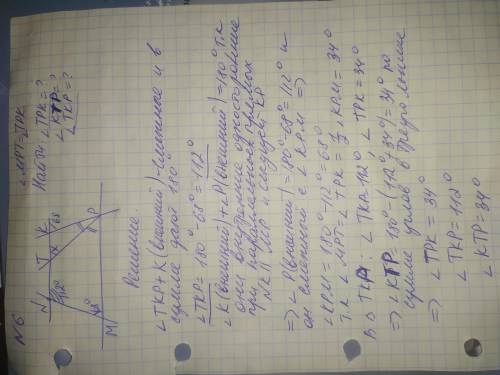 N6
∠MPT=∠TPK
Найти: ∠TPK=?
∠KTP=?
∠TKP=?
N T K 68
P
M
Решение
∠TKP+K(внешний)-смежные и в
сумме дают 180°
∠TKP=180°-68°=112°
∠K(внешний)+∠P(внешний)=180° т.к
они внутренние односторонние
при параллельных прямых
NK || MP и секущей KP
=> ∠P(внешний)=180°-68°=112° и
он смежный с ∠KPM =>
∠KPM=180°-112°=68°
т.к ∠MPT=∠TPK=½∠KPM=34°
В Δ TKP: ∠TKP=112°, ∠TPK=34°
=> ∠KTP=180°-(112°+34°)=34° по
сумме углов в треугольнике
=> ∠TPK=34°
∠TKP=112°
∠KTP=34°